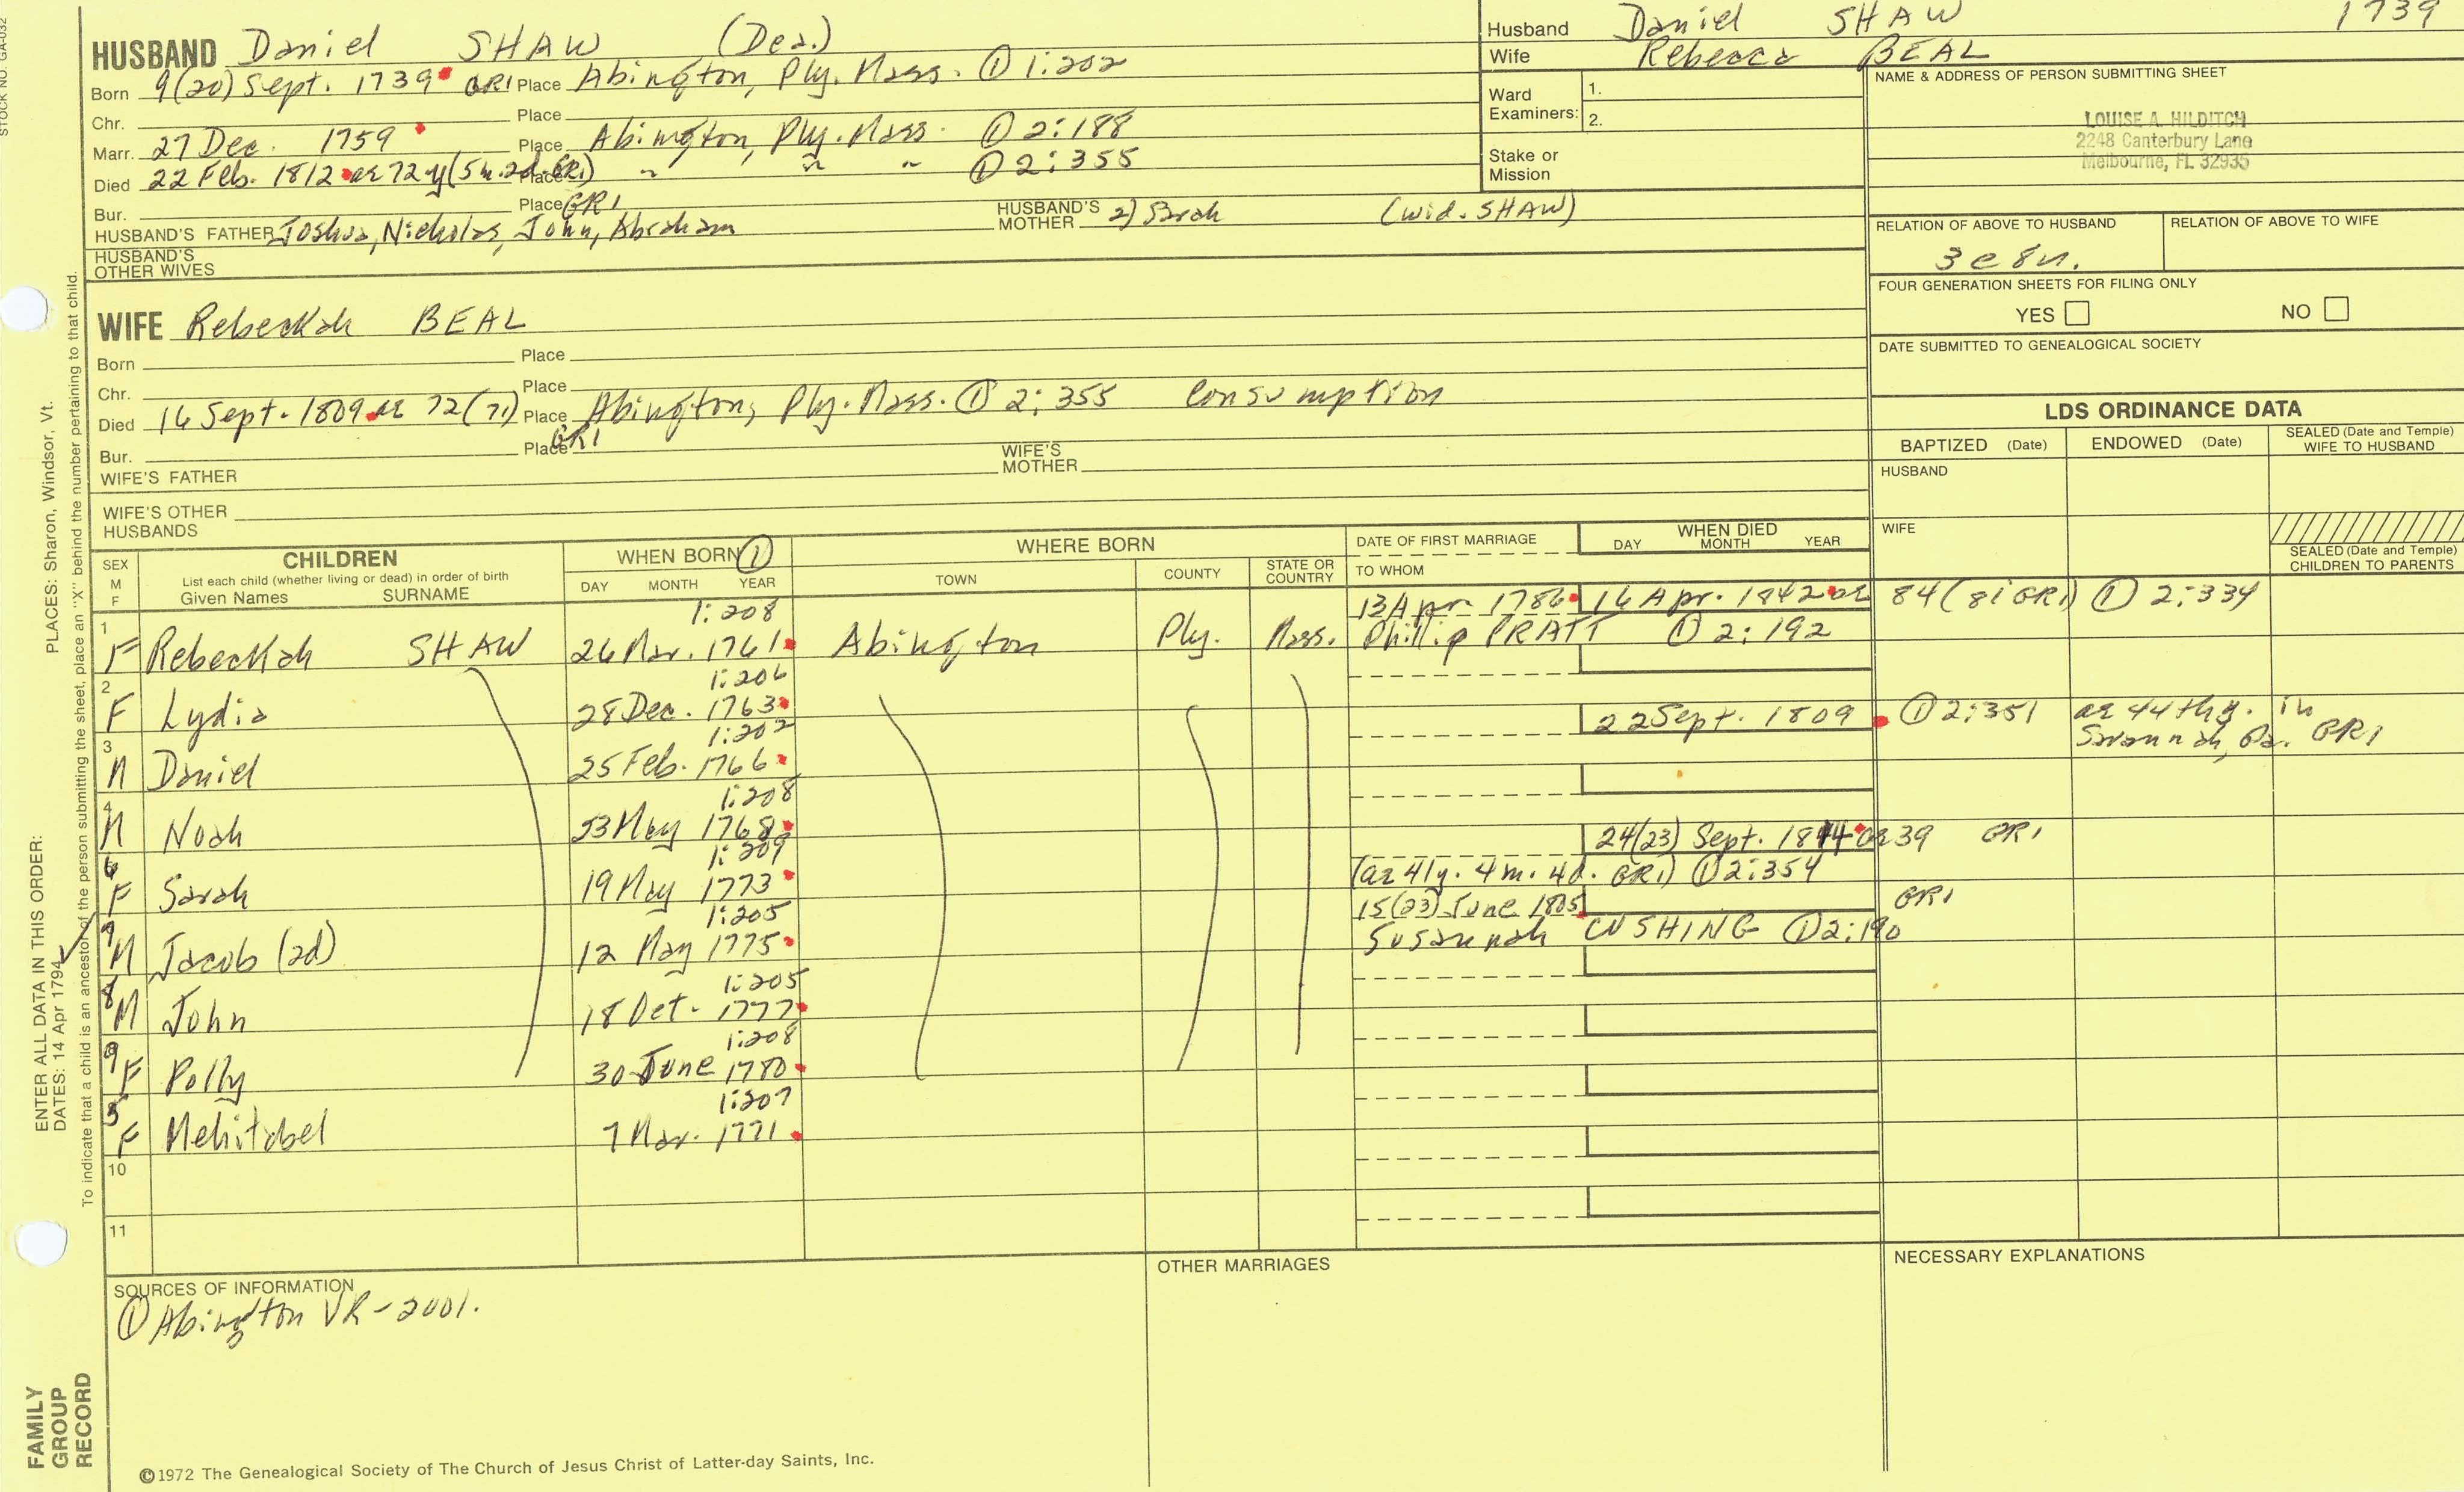 STOCK NO. GA-032
HUSBAND Daniel SHAW (Dea.)
Born 9(20) Sept. 1739 GR1 Place Abington, Ply. Mass. ① 1:202
Chr. Place
Marr. 27 Dec. 1759 Place Abington, Ply. Mass. ① 2:188
Died 22 Feb. 1812 ae 72 y (5 m. 2d. GR1) Place " " " ① 2:355
Bur. Place GR1
HUSBAND'S FATHER Joshua, Nicholas, John, Abraham HUSBAND'S MOTHER 2) Sarah (wid. SHAW)
HUSBAND'S OTHER WIVES
Husband Daniel SHAW 1739
Wife Rebecca BEAL
Ward Examiners: 1.
2.
Stake or Mission
NAME & ADDRESS OF PERSON SUBMITTING SHEET
LOUISE A. HILDITCH
2248 Canterbury Lane
Melbourne, FL 32935
RELATION OF ABOVE TO HUSBAND RELATION OF ABOVE TO WIFE
FOUR GENERATION SHEETS FOR FILING ONLY
YES NO
DATE SUBMITTED TO GENEALOGICAL SOCIETY
WIFE Rebeckah BEAL
Born Place
Chr. Place
Died 16 Sept. 1809 ae 72 (71) Place Abington, Ply. Mass. ① 2:355 Consumption
Bur. Place GR1
WIFE'S FATHER WIFE'S MOTHER
WIFE'S OTHER HUSBANDS
LDS ORDINANCE DATA
BAPTIZED (Date) ENDOWED (Date) SEALED (Date and Temple) WIFE TO HUSBAND
HUSBAND
WIFE
SEALED (Date and Temple) CHILDREN TO PARENTS
SEX M F CHILDREN WHEN BORN ① WHERE BORN DATE OF FIRST MARRIAGE WHEN DIED
List each child (whether living or dead) in order of birth
Given Names SURNAME DAY MONTH YEAR TOWN COUNTY STATE OR COUNTRY TO WHOM DAY MONTH YEAR
1:208 13 Apr. 1786 16 Apr. 1842 ae 84 (81 GR1) ① 2:334
1 F Rebeckah SHAW 26 Mar. 1761 Abington Ply. Mass. Phillip PRATT ① 2:192
1:206
2 F Lydia 28 Dec. 1763 22 Sept. 1809 ① 2:351 ae 44th y. in
1:202 Savannah, Ga. GR1
3 M Daniel 25 Feb. 1766
1:208
4 M Noah 23 May 1768 24(23) Sept. 1814 ae 39 GR1
1:209 (ae 41y. 4m. 4d. GR1) ① 2:354
6 F Sarah 19 May 1773
1:205 15(23) June 1805 GR1
7 M Jacob (2d) 12 May 1775 Susannah CUSHING ① 2:190
1:205
8 M John 18 Oct. 1777
1:208
9 F Polly 30 June 1780
1:207
5 F Mehitabel 7 Mar. 1771
10
11
SOURCES OF INFORMATION
① Abington VR - 2001.
OTHER MARRIAGES
NECESSARY EXPLANATIONS
ENTER ALL DATA IN THIS ORDER:
DATES: 14 Apr 1794
PLACES: Sharon, Windsor, Vt.
To indicate that a child is an ancestor of the person submitting the sheet, place an "X" behind the number pertaining to that child.
FAMILY GROUP RECORD
©1972 The Genealogical Society of The Church of Jesus Christ of Latter-day Saints, Inc.